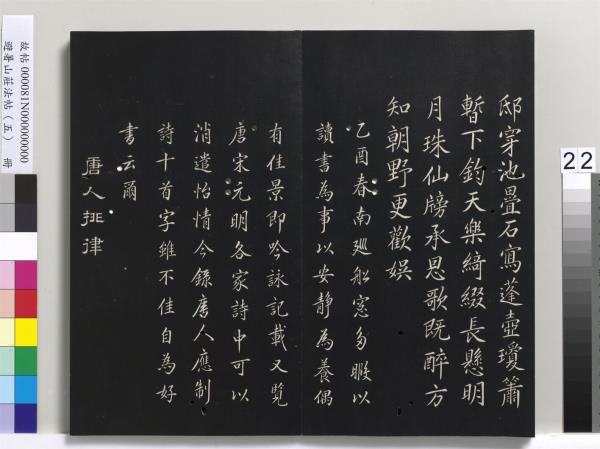 邸穿池疊石寫蓬壺瓊簫
暫下鈞天樂綺綴長懸明
月珠仙牓承恩歌既醉方
知朝野更歡娛
乙酉春南廵船窓多暇以
讀書為事以安靜為養偶
有佳景即吟詠記載又覧
唐宋元明各家詩中可以
消遣怡情今錄唐人應制
詩十首字雖不佳自為好
書云爾
唐人排律
故帖 000081N000000000
避暑山莊法帖（五） 冊
22